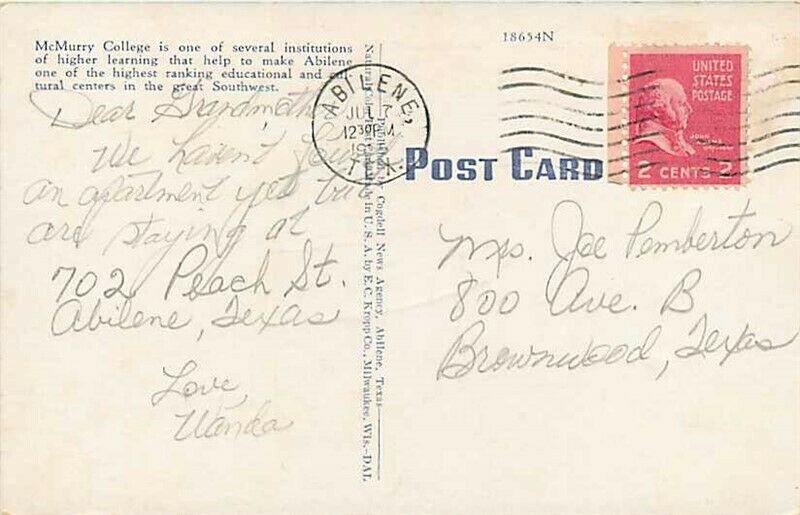 McMurry College is one of several institutions
of higher learning that help to make Abilene
one of the highest ranking educational and cul-
tural centers in the great Southwest.
18654N
UNITED
STATES
POSTAGE
JOHN
2 CENTS 2
ABILENE,
JUL 7
12 30 PM
TEX.
POST CARD
Published by Cogdell News Agency, Abilene, Texas
Natural Color Post Card Made in U. S. A. by E. C. Kropp Co., Milwaukee, Wis.-DAL
Dear Grandmother
We haven't found
an apartment yet but
are staying at
702 Peach St.
Abilene, Texas
Love,
Wanda
Mrs. Joe Pemberton
800 Ave. B
Brownwood, Texas